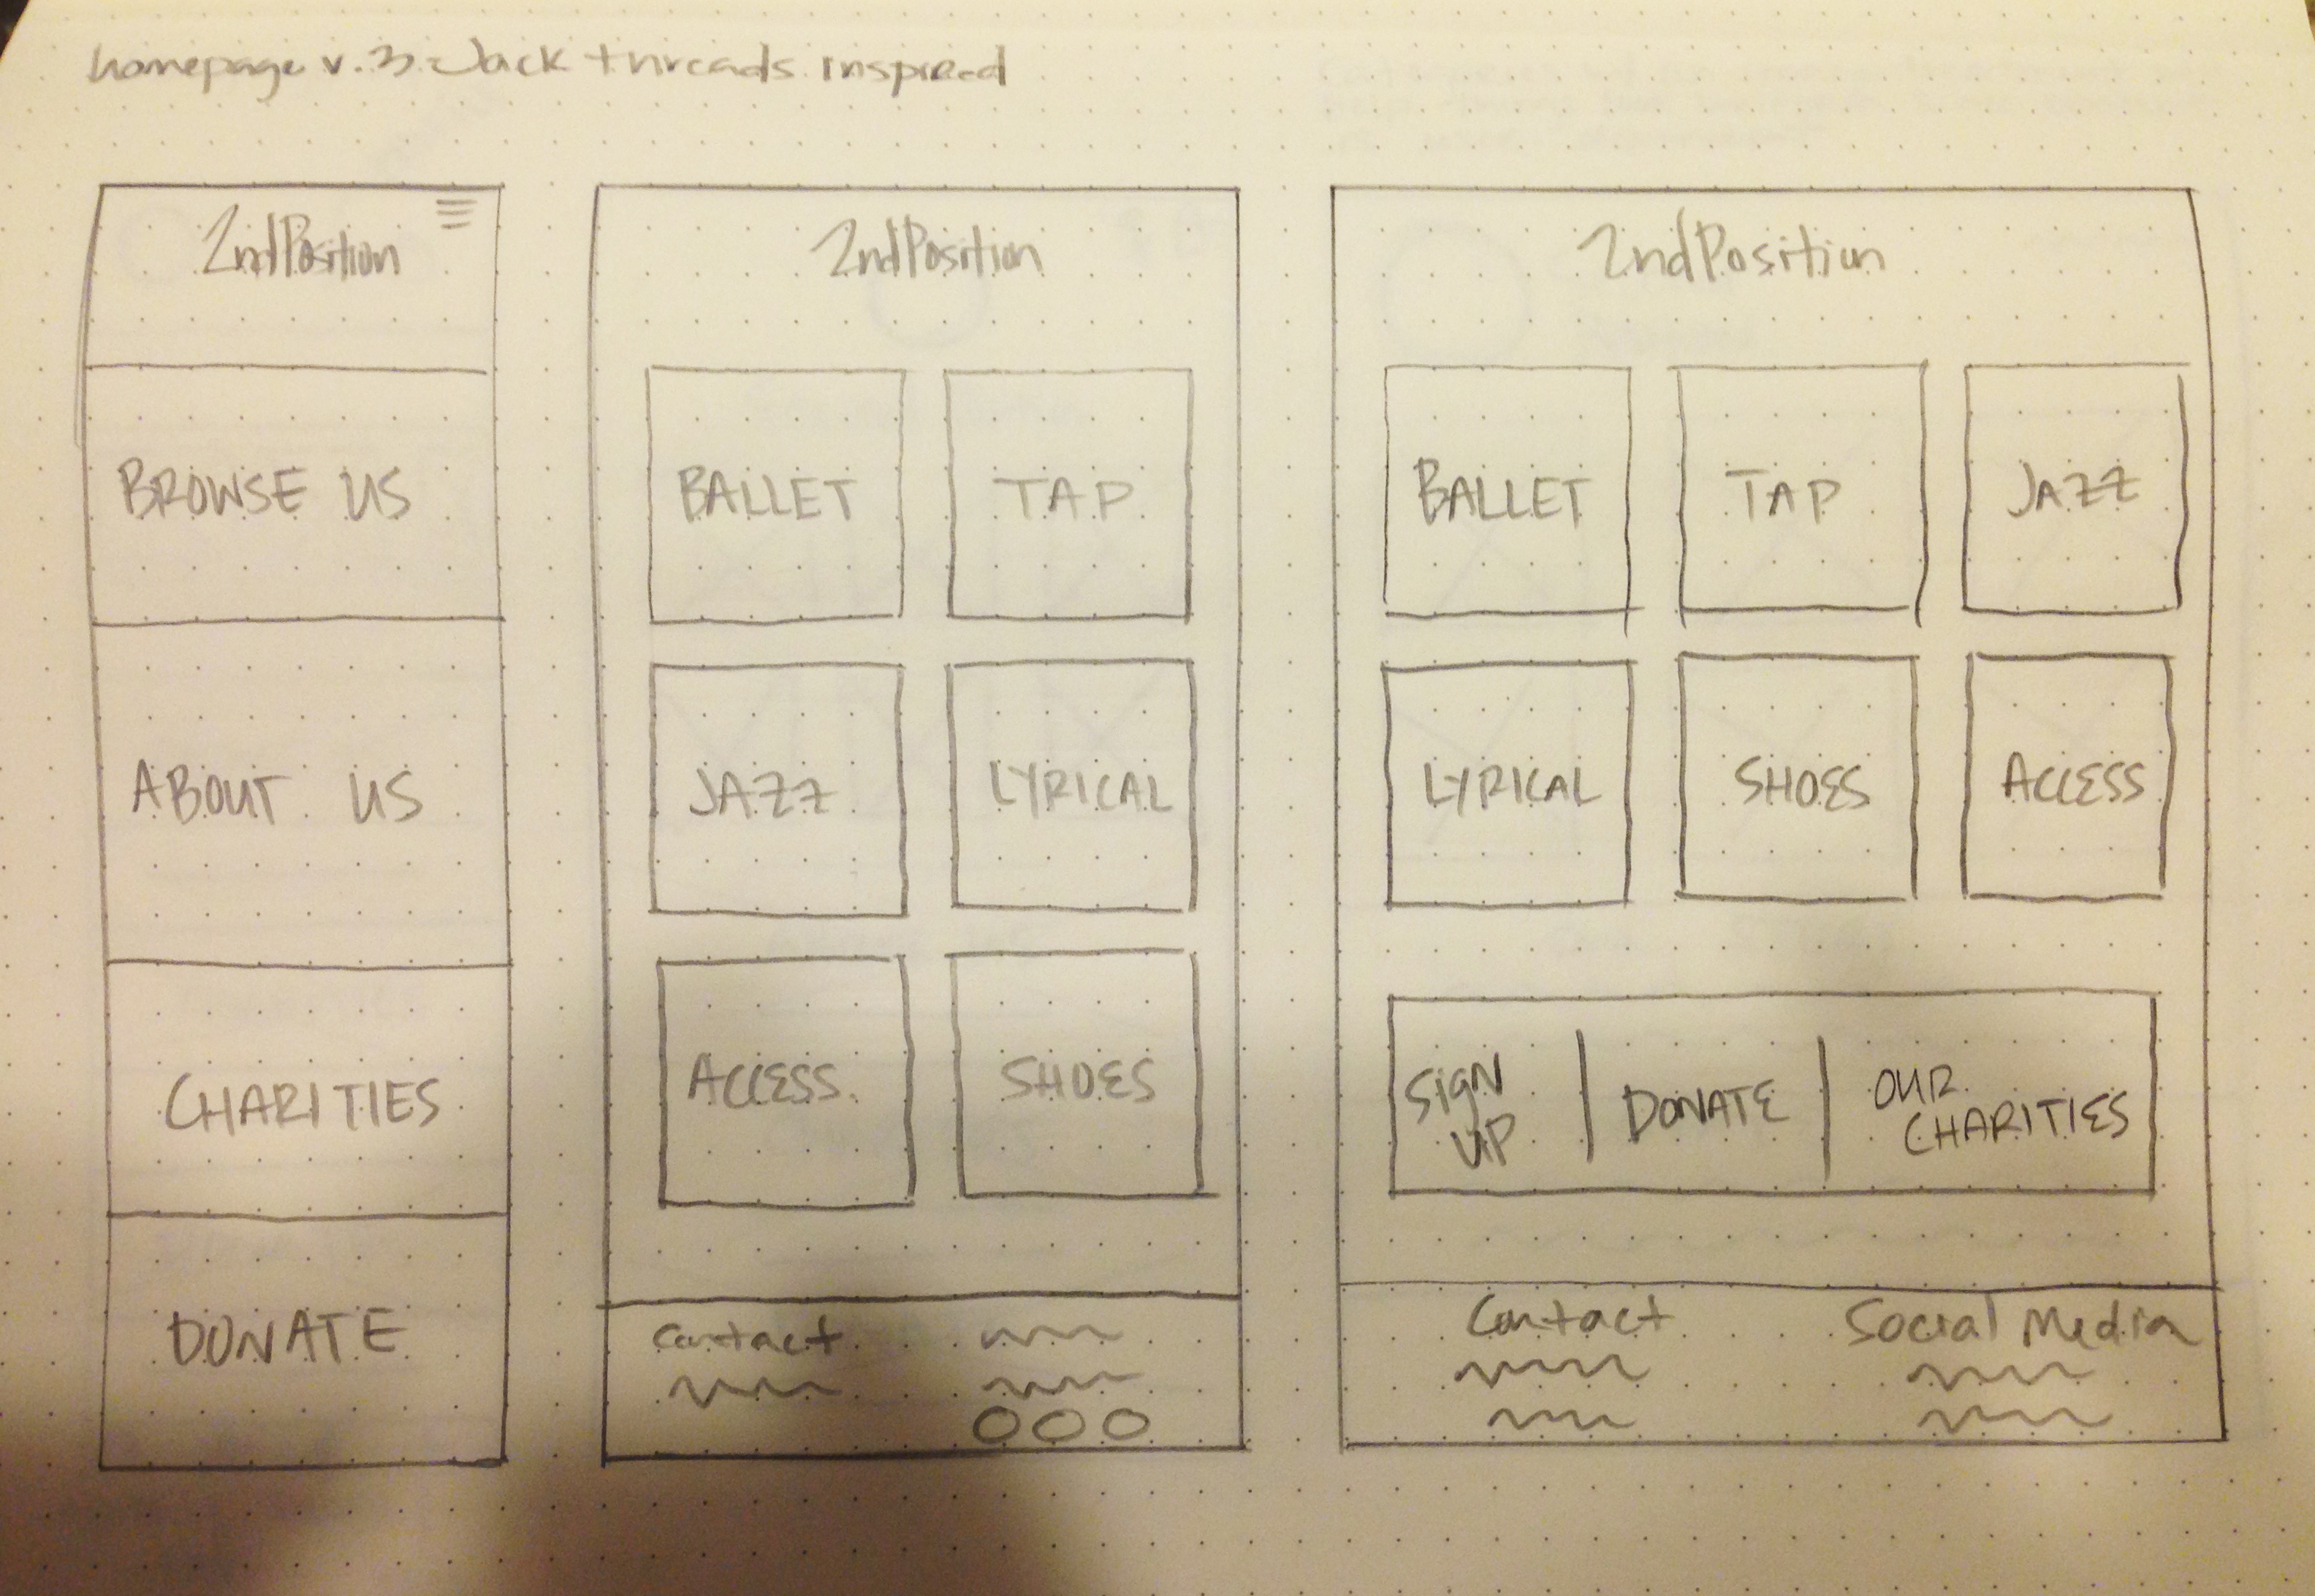 homepage v.3 Jack threads inspired
2ndPosition
BROWSE US
ABOUT US
CHARITIES
DONATE
2ndPosition
BALLET TAP
JAZZ LYRICAL
ACCESS SHOES
Contact
2ndPosition
BALLET TAP JAZZ
LYRICAL SHOES ACCESS
SIGN UP | DONATE | OUR CHARITIES
Contact Social Media